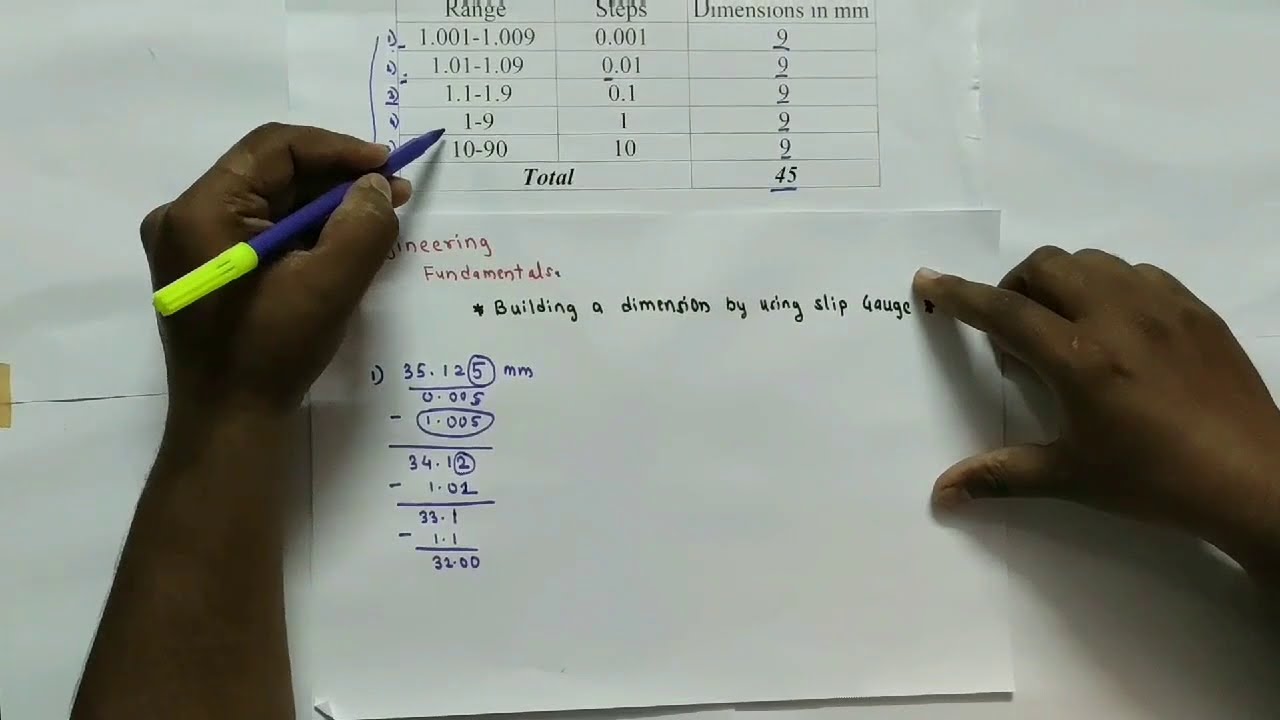 Range Steps Dimensions in mm
1.001-1.009 0.001 9
1.01-1.09 0.01 9
1.1-1.9 0.1 9
1-9 1 9
10-90 10 9
Total 45
gineering
Fundamentals.
* Building a dimension by using slip Gauge *
1) 35.125 mm
0.005
- 1.005
34.12
- 1.02
33.1
- 1.1
32.00